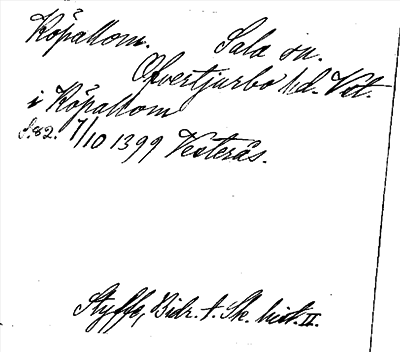 Köpallom. Sala sn.
Öfvertjurbo hd. Vst.
i Köpallom
S. 82. 7/10 1399 Vesterås.
Styffe, Bidr. t. Sk. hist. II.